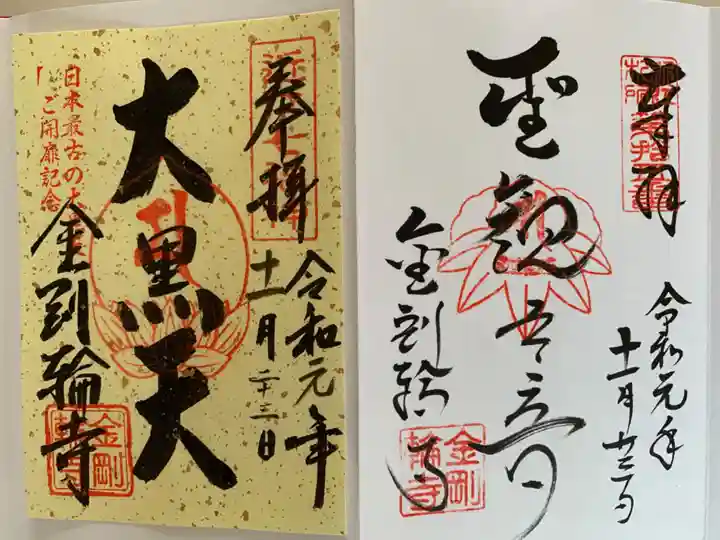 奉拝
令和元年
十一月二十三日
大黒天
日本最古の大
「ご開扉記念
金剛輪寺
金剛
輪寺
奉拝
聖観世音
金剛輪寺
令和元年
十一月廿三日
金剛
輪寺